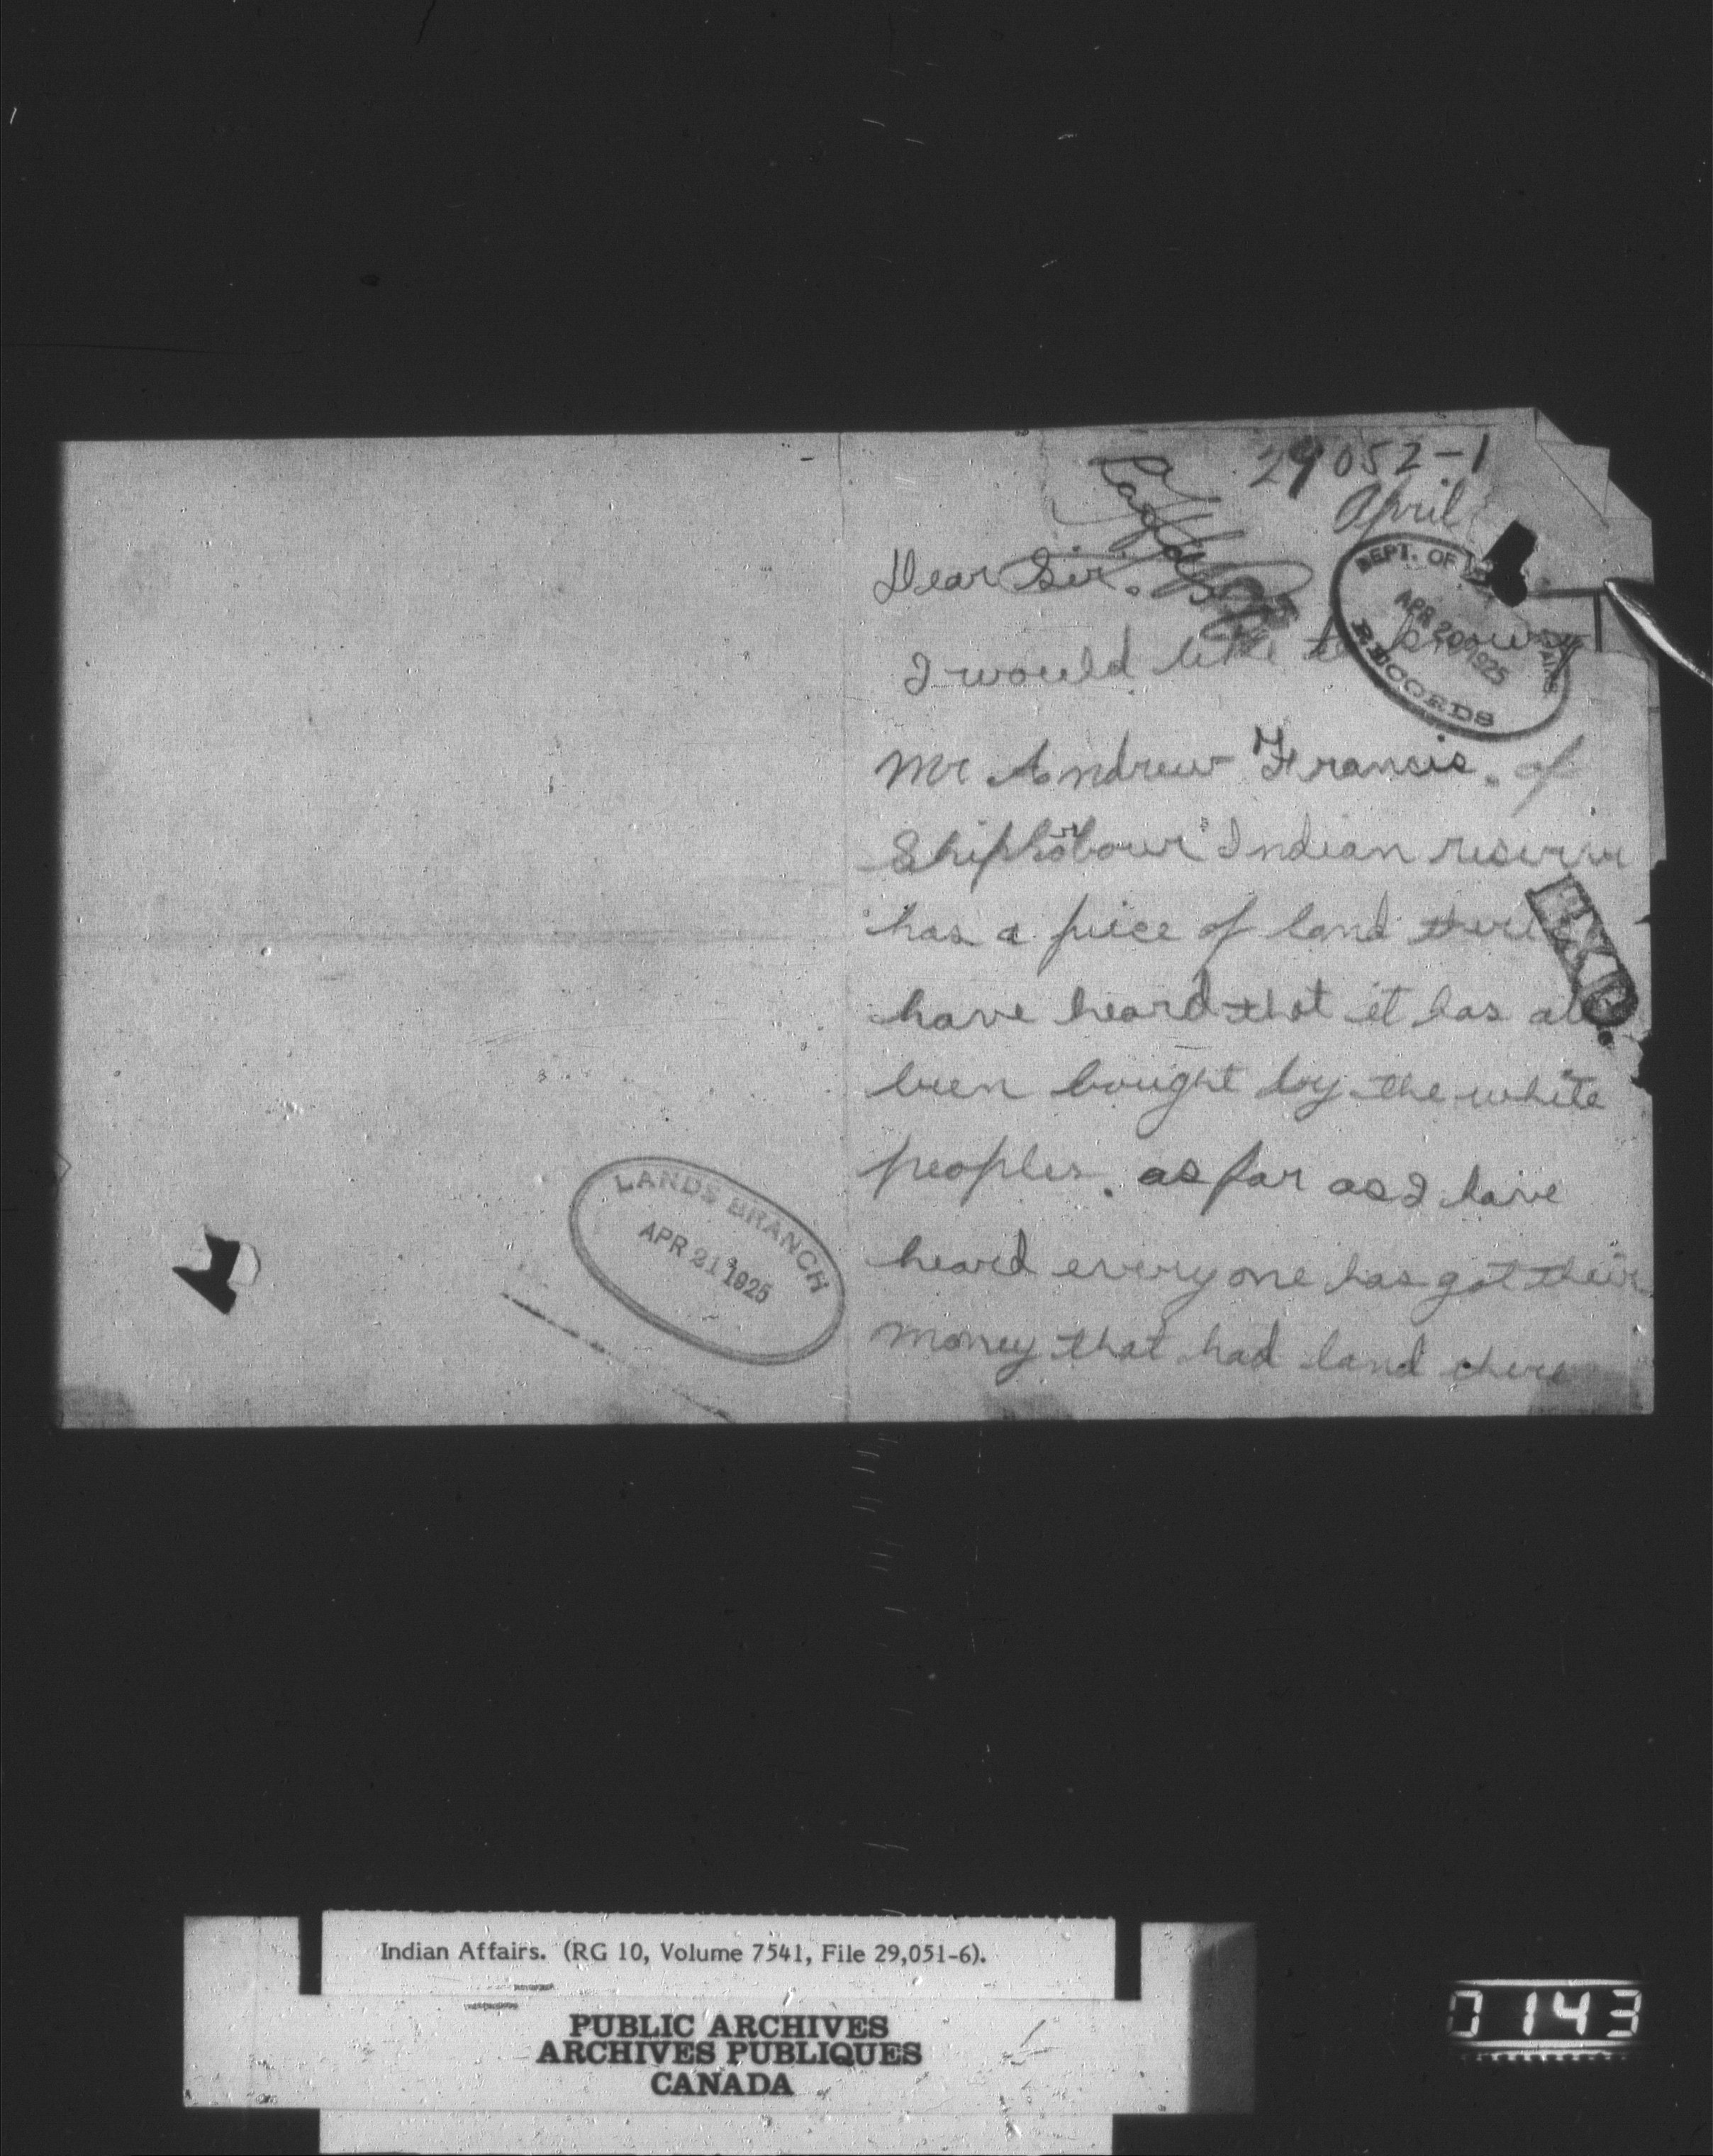 29052-1
April
Dear Sir.
DEPT. OF
APR 20 1925
RECORDS
I would like to know
Mr Andrew Francis. of
Shiphobour Indian reserve
has a piece of land there
have heard that it has all
been bought by the white
peoples. as far as I have
heard every one has got their
money that had land there
LANDS BRANCH
APR 21 1925
Indian Affairs. (RG 10, Volume 7541, File 29,051-6).
PUBLIC ARCHIVES
ARCHIVES PUBLIQUES
CANADA
0143